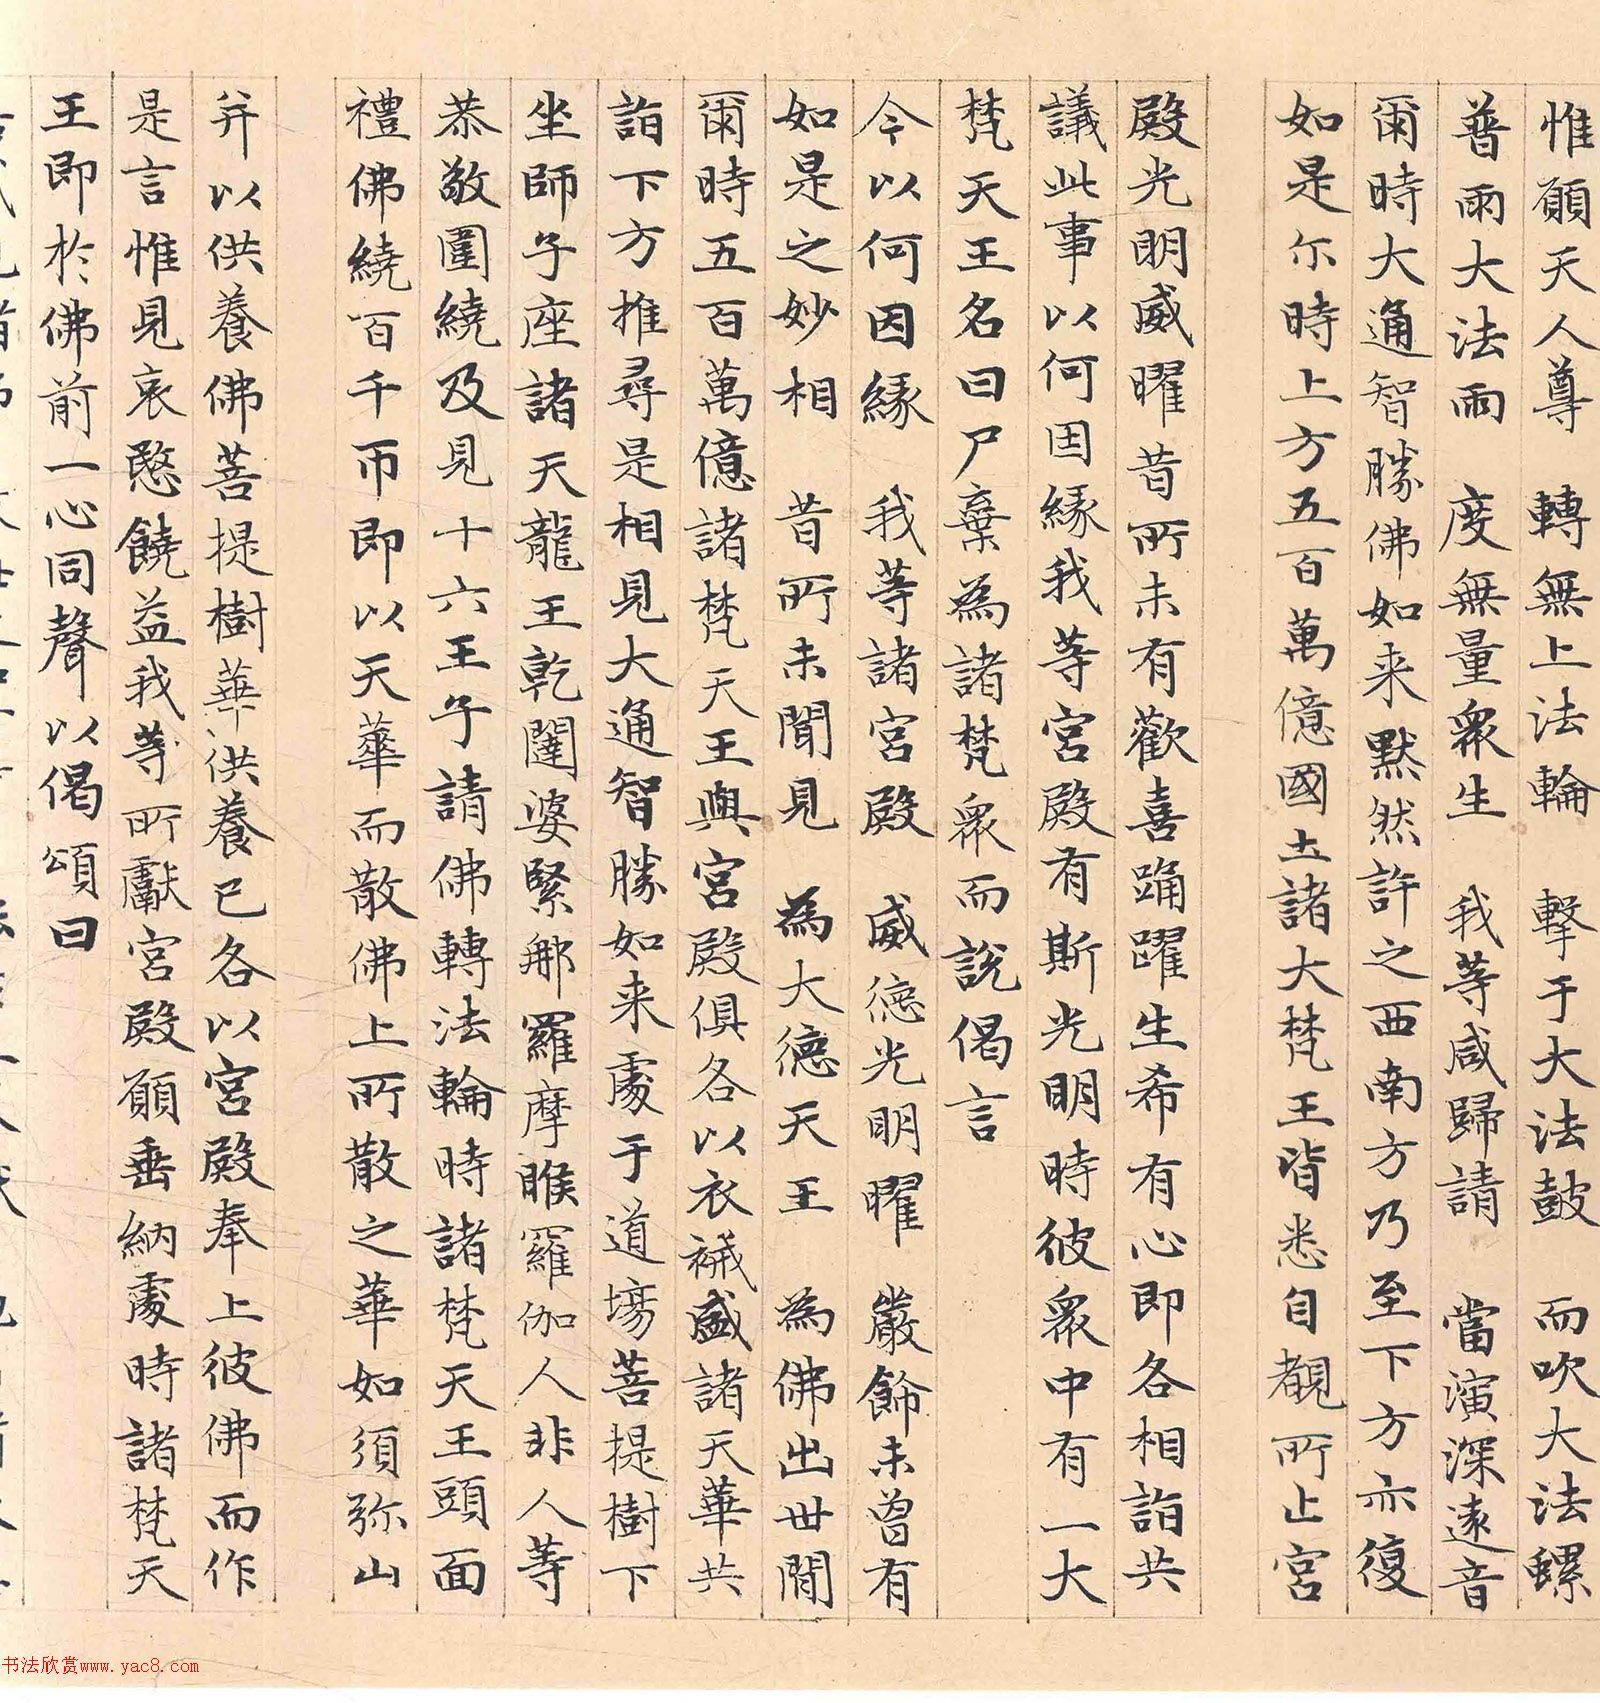 惟願天人尊 轉無上法輪 擊于大法鼓 而吹大法螺
普雨大法雨 度無量眾生 我等咸歸請 當演深遠音
爾時大通智勝佛如来默然許之西南方乃至下方亦復
如是尒時上方五百萬億國土諸大梵王皆悉自覩所止宮
殿光明威曜昔所未有歡喜踊躍生希有心即各相詣共
議此事以何因緣我等宮殿有斯光明時彼眾中有一大
梵天王名曰尸棄為諸梵眾而說偈言
今以何因緣 我等諸宮殿 威德光明曜 嚴飾未曾有
如是之妙相 昔所未聞見 為大德天王 為佛出世間
爾時五百萬億諸梵天王與宮殿俱各以衣祴盛諸天華共
詣下方推尋是相見大通智勝如来處于道場菩提樹下
坐師子座諸天龍王乾闥婆緊那羅摩睺羅伽人非人等
恭敬圍繞及見十六王子請佛轉法輪時諸梵天王頭面
禮佛繞百千帀即以天華而散佛上所散之華如須弥山
并以供養佛菩提樹華供養已各以宮殿奉上彼佛而作
是言惟見哀愍饒益我等所獻宮殿願垂納處時諸梵天
王即於佛前一心同聲以偈頌曰
书法欣赏www.yac8.com